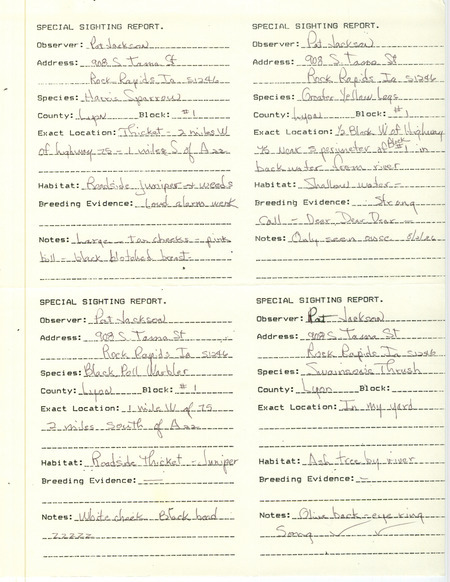 SPECIAL SIGHTING REPORT.
Observer: Pat Jackson
Address: 908 S. Tama St
Rock Rapids Ia 51246
Species: Harris Sparrow
County: Lyon Block: #1
Exact Location: Thicket - 2 miles W
of highway 75 - 1 miles S of A22
Habitat: Roadside Juniper + weeds
Breeding Evidence: Loud alarm
Notes: Large - Tan cheeks - pink
bill - black blotched breast
SPECIAL SIGHTING REPORT.
Observer: Pat Jackson
Address: 908 S Tama St
Rock Rapids Ia 51246
Species: Greater Yellow Legs
County: Lyon Block: #1
Exact Location: 1/2 Block W of Highway
75 perimeter of Block #1 in
back water from river
Habitat: Shallow water -
Breeding Evidence: Strong
Call - Dear Dear Dear
Notes: Only seen once
SPECIAL SIGHTING REPORT.
Observer: Pat Jackson
Address: 908 S Tama St
Rock Rapids Ia 51246
Species: Black Poll Warbler
County: Lyon Block: #1
Exact Location: 1 mile W of 75
2 miles South of A22
Habitat: Roadside Thicket - Juniper
Breeding Evidence: -
Notes: White cheek Black head
zzzzz
SPECIAL SIGHTING REPORT.
Observer: Pat Jackson
Address: 908 S Tama St
Rock Rapids Ia 51246
Species: Swainson's Thrush
County: Lyon Block:
Exact Location: In my yard
Habitat: Ash tree by river
Breeding Evidence: -
Notes: Olive back - eye ring
Song